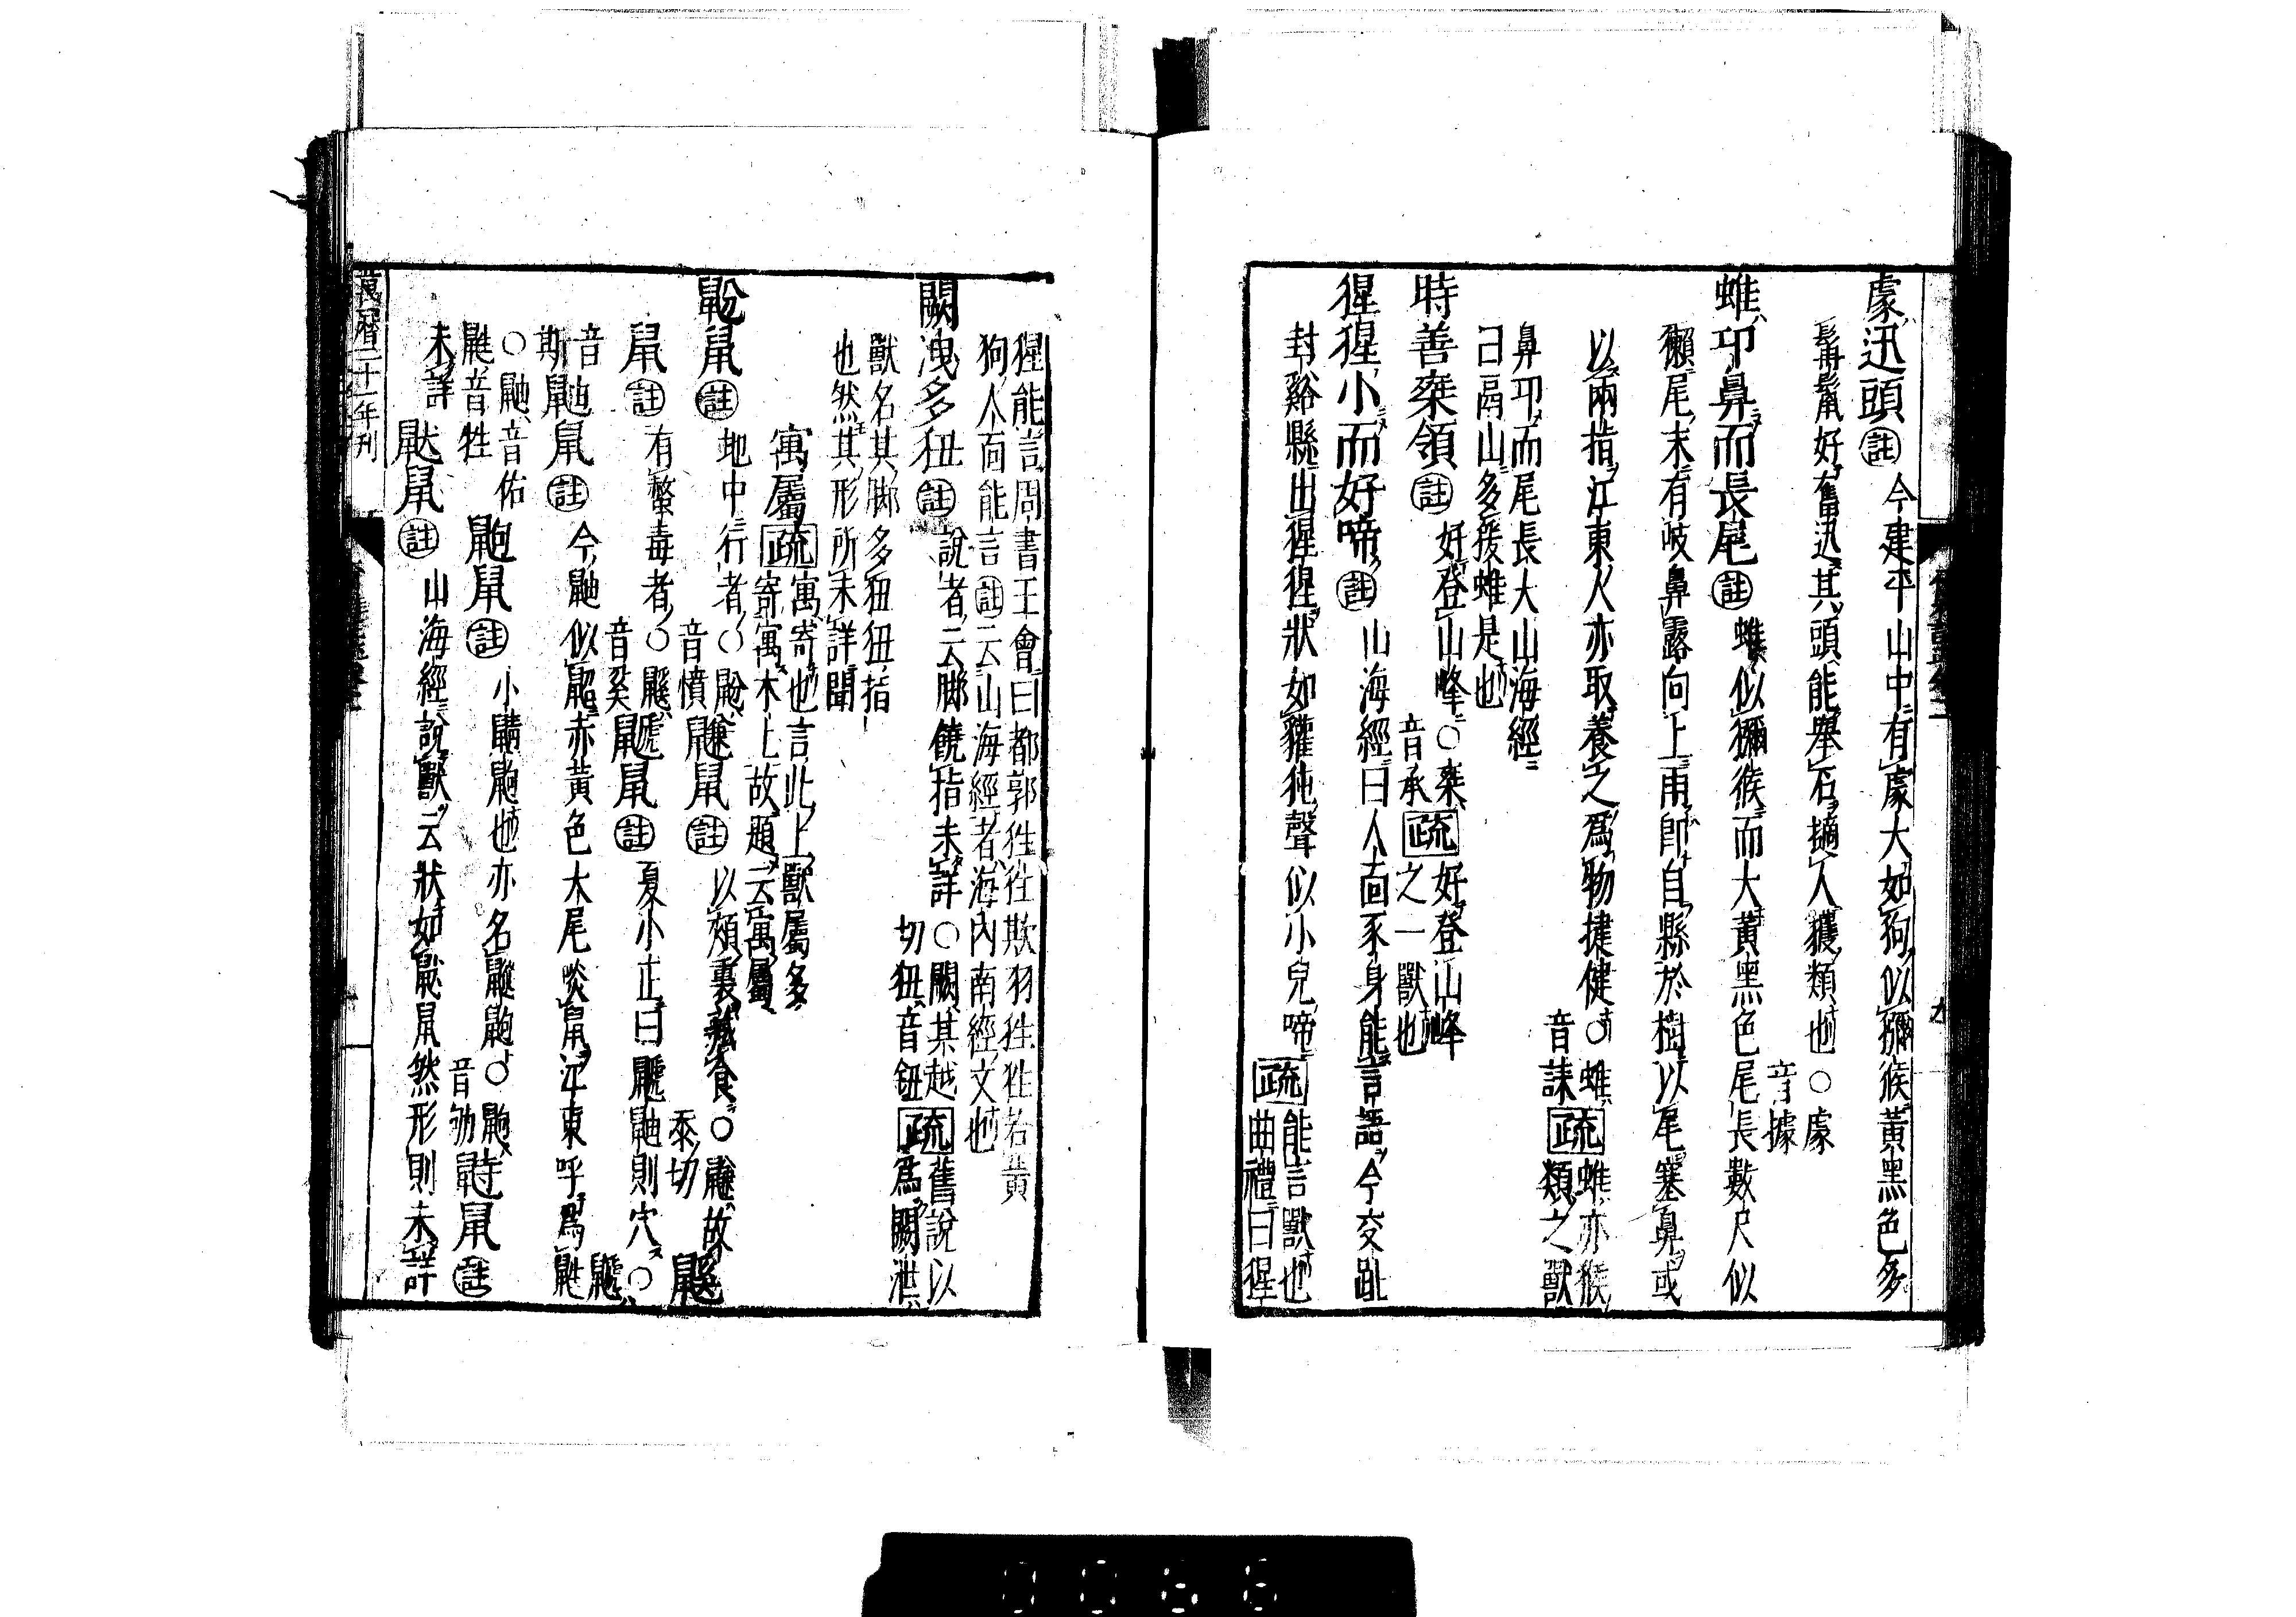 豦迅頭註今建平山中有豦大如狗似獼猴黃黑色多
髯鬣好奮迅其頭能舉石擿人玃類也○豦
音據
蜼卬鼻而長尾註蜼似獼猴而大黃黑色尾長數尺似
獺尾末有岐鼻露向上雨卽自縣於樹以尾塞鼻或
以兩指江東人亦取養之爲物捷健○蜼
音誄疏蜼亦猴
類之獸
鼻卬而尾長大山海經
曰鬲山多猨蜼是也
時善椉領註好登山峰○椉
音承疏好登山峰
之一獸也
猩猩小而好啼註山海經曰人面豕身能言語今交趾
封谿縣出猩猩狀如貛㹠聲似小兒啼疏能言獸也
曲禮曰猩
猩能言周書王會曰都郭狌狌欺羽狌狌若黃
狗人面能言註云山海經者海內南經文也
闕洩多狃註說者云脚饒指未詳○闕其越
切狃音鈕疏舊說以
爲闕泄
獸名其脚多狃狃指
也然其形所未詳聞
寓屬疏寓寄也言此上獸屬多
寄寓木上故題云寓屬
鼢鼠註地中行者○鼢
音憤鼸鼠註以頰裏藏食○鼸故
忝切鼷
鼠註有螫毒者○鼷
音奚鼶鼠註夏小正曰鼶鼬則穴○
鼶
音
斯鼬鼠註今鼬似鼦赤黃色大尾啖鼠江東呼爲鼪
○鼬音佑
鼪音牲鼩鼠註小鼱鼩也亦名䶆鼩○鼩
音劬鼭鼠註
未詳䶈鼠註山海經說獸云狀如䶈鼠然形則未詳
萬曆二十一年刊